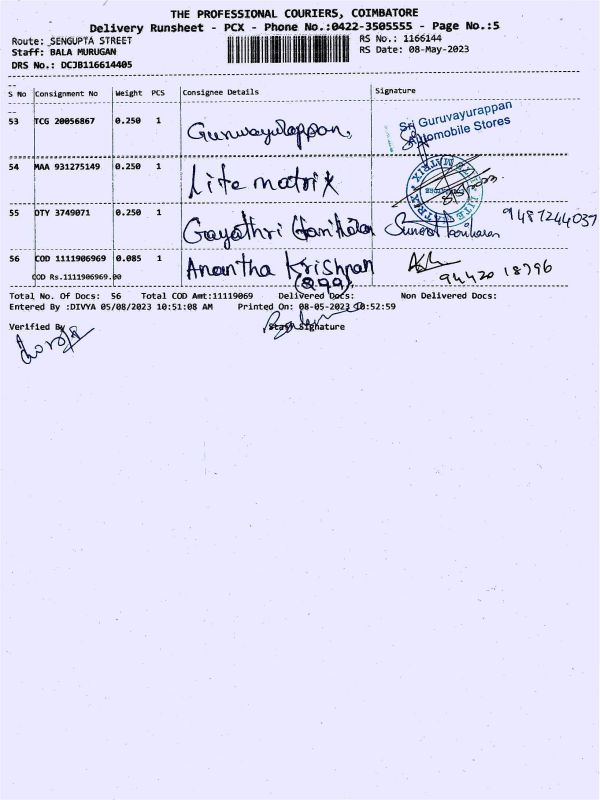 THE PROFESSIONAL COURIERS, COIMBATORE
Delivery Runsheet - PCX - Phone No.:0422-3505555 - Page No.:5
Route: SENGUPTA STREET
RS No.: 1166144
Staff: BALA MURUGAN
RS Date: 08-May-2023
DRS No.: DCJB116614405
S No Consignment No Weight PCS Consignee Details Signature
53 TCG 20056867 0.250 1 Guruvayurappan,
Sri Guruvayurappan
Automobile Stores
54 MAA 931275149 0.250 1 Lite matrix
LITE MATRIX
55 DTY 3749071 0.250 1 Gayathri Harikaran
9487244037
56 COD 1111906969 0.085 1 Anantha Krishnan
(299)
94420 18796
COD Rs.1111906969.00
Total No. Of Docs: 56 Total COD Amt:11119069 Delivered Docs: Non Delivered Docs:
Entered By :DIVYA 05/08/2023 10:51:08 AM Printed On: 08-05-2023 10:52:59
Verified By Staff Signature